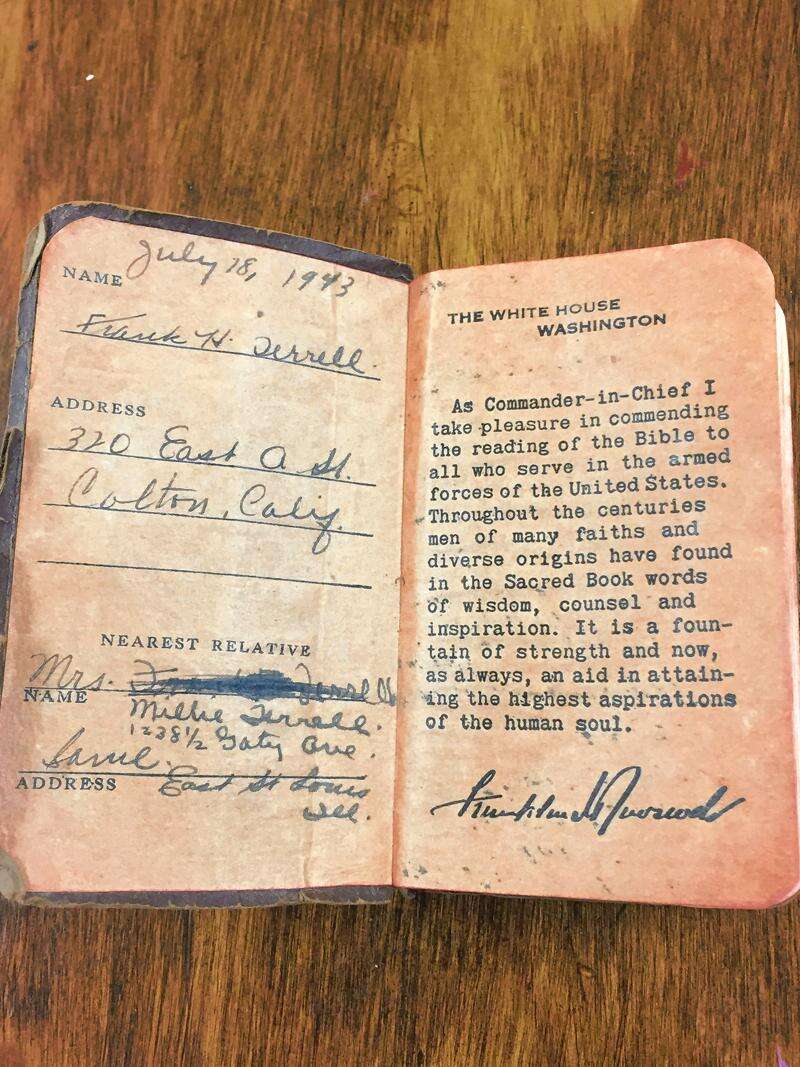 July 18, 1943
NAME
Frank H. Terrell.
ADDRESS
320 East O St.
Colton, Calif.
NEAREST RELATIVE
Mrs. Terrell
NAME
Millie Terrell.
1238½ Gaty Ave.
Same.
ADDRESS
East St Louis
Ill.
THE WHITE HOUSE
WASHINGTON
As Commander-in-Chief I
take pleasure in commending
the reading of the Bible to
all who serve in the armed
forces of the United States.
Throughout the centuries
men of many faiths and
diverse origins have found
in the Sacred Book words
of wisdom, counsel and
inspiration. It is a foun-
tain of strength and now,
as always, an aid in attain-
ing the highest aspirations
of the human soul.
Franklin D Roosevelt